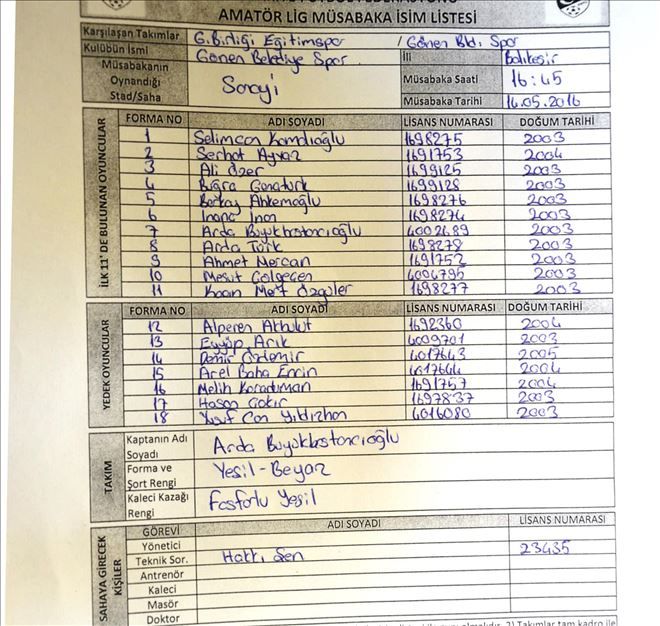 AMATÖR LİG MÜSABAKA İSİM LİSTESİ
Karşılaşan Takımlar G.Birliği Eğitimspor / Gönen Bld. Spor
Kulübün İsmi Gönen Belediye Spor İli Balıkesir
Müsabakanın Oynandığı Stad/Saha Sarayi Müsabaka Saati 16:45
Müsabaka Tarihi 14.05.2016
İLK 11' DE BULUNAN OYUNCULAR
FORMA NO ADI SOYADI LİSANS NUMARASI DOĞUM TARİHİ
1 Selimcan 1698275 2003
2 Serhat Ayvaz 1691753 2004
3 Ali Özer 1699125 2003
4 Buğra Genatürk 1699128 2003
5 Berkay Ahkemoğlu 1698276 2003
6 İnanç İnan 1698274 2003
7 Arda Büyükbostancıoğlu 4002489 2003
8 Arda Türk 1698278 2003
9 Ahmet Mercan 1691752 2003
10 Mesut Gölgeçen 4004795 2003
11 Kaan Mert Özgüler 1698277 2003
YEDEK OYUNCULAR
FORMA NO ADI SOYADI LİSANS NUMARASI DOĞUM TARİHİ
12 Alperen Akbulut 1692360 2004
13 Eyyüp Arık 4009701 2003
14 Demir Özdemir 4017643 2005
15 Arel Baha Engin 4017644 2004
16 Melih Karaduman 1691757 2004
17 Hasan Çakır 1697837 2003
18 Yusuf Can Yıldızhan 4016080 2003
TAKIM
Kaptanın Adı Soyadı Arda Büyükbostancıoğlu
Forma ve Şort Rengi Yeşil-Beyaz
Kaleci Kazağı Rengi Fosforlu Yeşil
SAHAYA GİRECEK KİŞİLER
GÖREVİ ADI SOYADI LİSANS NUMARASI
Yönetici
Teknik Sor. Hakkı Şen 23435
Antrenör
Kaleci
Masör
Doktor